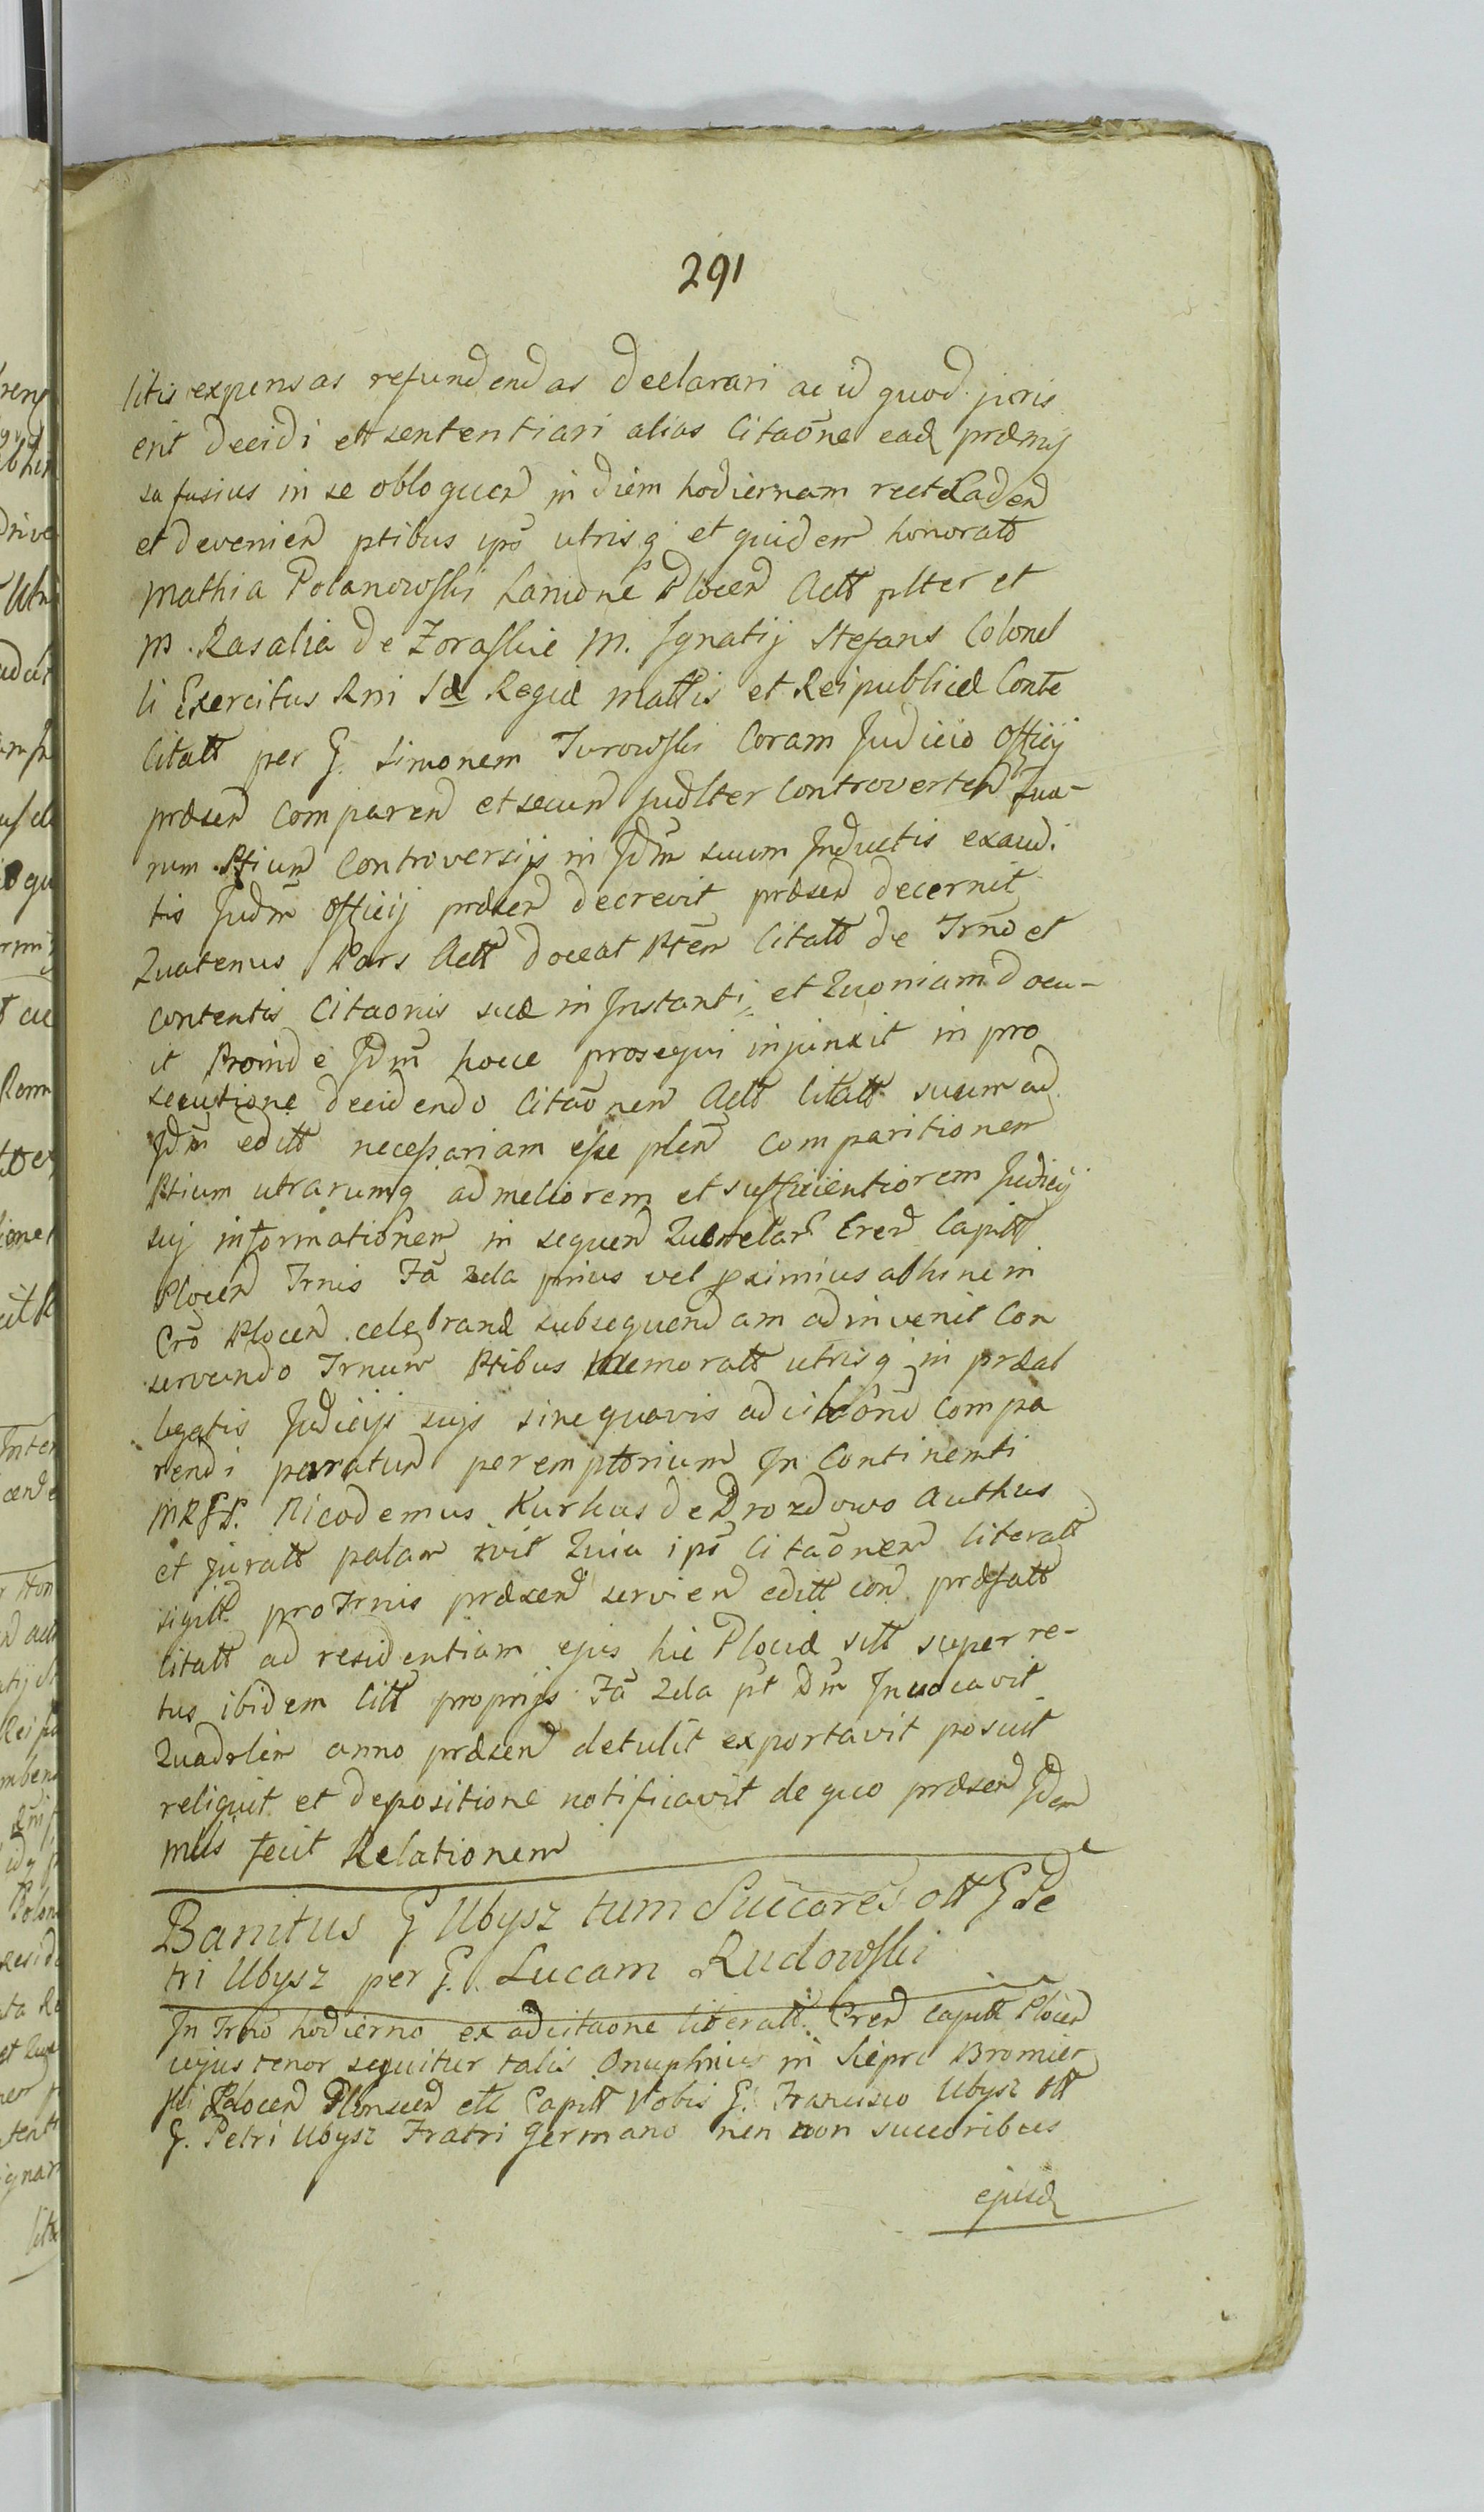 291
litis expensas refundendas declarari ac id quod juris
erit decidi et sententiari alias Citaōne ead præmis
sa fusius in se obloquen in diem hodiernam recte Caden
et devenien ptibus ips utrisq et quidem honoratt
Mathia Polanowski Lanione Plocen Actt plter et
M. Rasalia de Zoraskie M. Ignatij Stefans Colonel
li Exercitus Rni Sæ Regiæ Mattis et Reipublicæ Conte
Citatt per G. Simonem Turowski Coram Judicio Officij
præsen comparen et secum Judlter Controverten Qua-
rum Ptium Controversijs in Jdm suum Inductis exaudi
tis Judm Officij præsen decrevit præsen decernit
Quatenus Pars Actt doceat Ptem Citatt de Trno et
contentis Citaonis suæ in Instanti, et Quoniam docu-
it Proinde Jdm hocce prosequi injunxit in pro
secutione decidendo Citaōnem Actt Citatt suum ad
Jdm editt necessariam esse plen comparitionem
Ptium utrarumq ad meliorem et sufficientiorem Judicij
sui informationem in sequen Querelar Cren Capitt
Plocen Trnis Fa 2da prius vel pximius abhinc in
Cro Plocen celebrand subsequendam adinvenit Con
servando Trnum Ptibus memoratt utrisq in præal
legatis Judicijs suis sine quavis adcitaōne compa
rendi paratum peremptorium In Continenti
MRGP. Nicodemus Kurkus de Drozdowo Authus
et Juratt palam xvit Quia ips Citaōnem literatt
sigitt pro Trnis præsen servien editt con præfatt
Citatt ad residentiam ejus hic Plociæ sitt super re-
tus ibidem Citt proprijs Fa 2da pt Dm Invocavit
Quadrlem anno præsen detulit exportavit posuit
reliquit et depositione notificavit de quo præsen Jdem
mlis fecit Relationem
Banitus G Ubysz tum Succores ott G Pe
tri Ubysz per G. Lucam Rudowski
In Trno hodierno ex adcitaone literatt Cren Capitt Plocen
cujus tenor sequitur talis Onuphrius in Siepre Bromier
ski Plocen Plonscen ett Capitt Vobis G. Francisco Ubysz ott
G. Petri Ubysz Fratri Germano nen non succoribus
ejusd